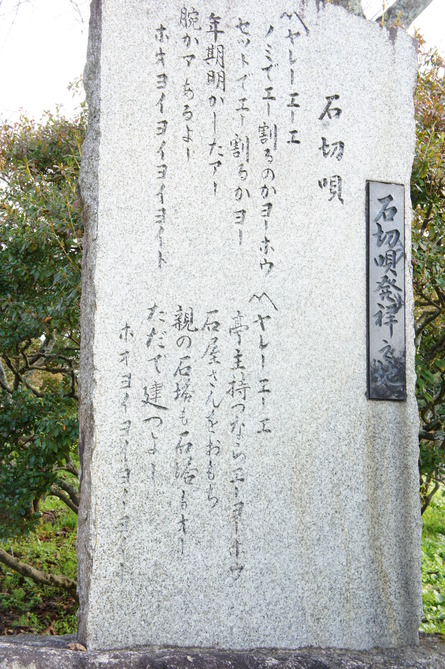 石切唄発祥之地
石切唄
〽ヤレーエーエ
ノミでエー割るのかヨーホウ
セットでエー割るかヨー
年期明かしたアー
腕かアあるよー
ホオヨイヨイヨイヨイト
〽ヤレーエーエ
亭主持つならエーヨーホウ
石屋さんをおもち
親の石塔も石塔もオー
ただで建つよー
ホオヨイヨイヨ